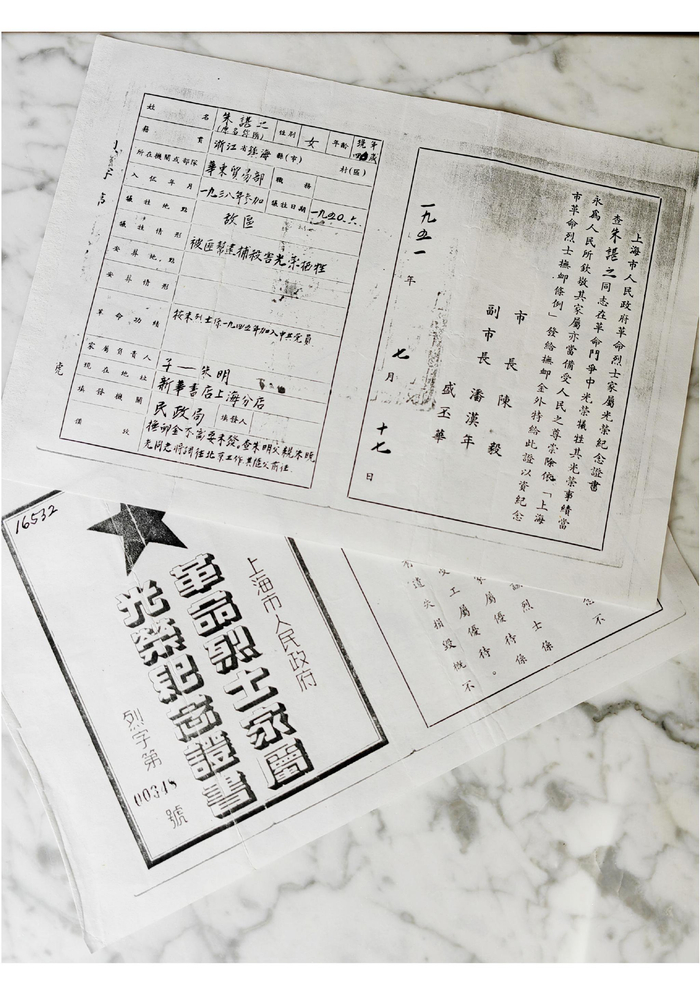 姓名 朱諶之(原名弥隱) 性别 女 年齡 現年四 歲
籍貫 浙江省鎮海縣(市) 村(區)
所在機關或部隊 華東貿易部 職務
入伍年月 一九三八年参加 犧牲日期 一九五〇.六.
犧牲地點 敌區
犧牲情形 被匪幫逮捕殺害光荣犧牲
安葬地點
安葬情形
革命功績 諶之烈士係一九四五年加入中共党員
家屬負責人 子—朱明
現在地址 新華書店上海分店
填發機關 民政局 填發人
備攷 撫卹金不需要未發。查朱明父親朱曉
光同志將調往北京工作其隨父前往
號
上海市人民政府革命烈士家屬光榮紀念證書
查朱諶之同志在革命鬥爭中光榮犧牲其光榮事蹟當
永為人民所欽敬其家屬亦當備受人民之尊崇除依「上海
市革命烈士撫卹條例」發給撫卹金外特給此證以資紀念
市長 陳毅
副市長 潘漢年
盛丕華
一九五一年七月十七日
16532
上海市人民政府
革命烈士家屬
光榮紀念證書
烈字第00348號
念不
烈士係
屬優待係
工屬優待。
遺失損毀概不